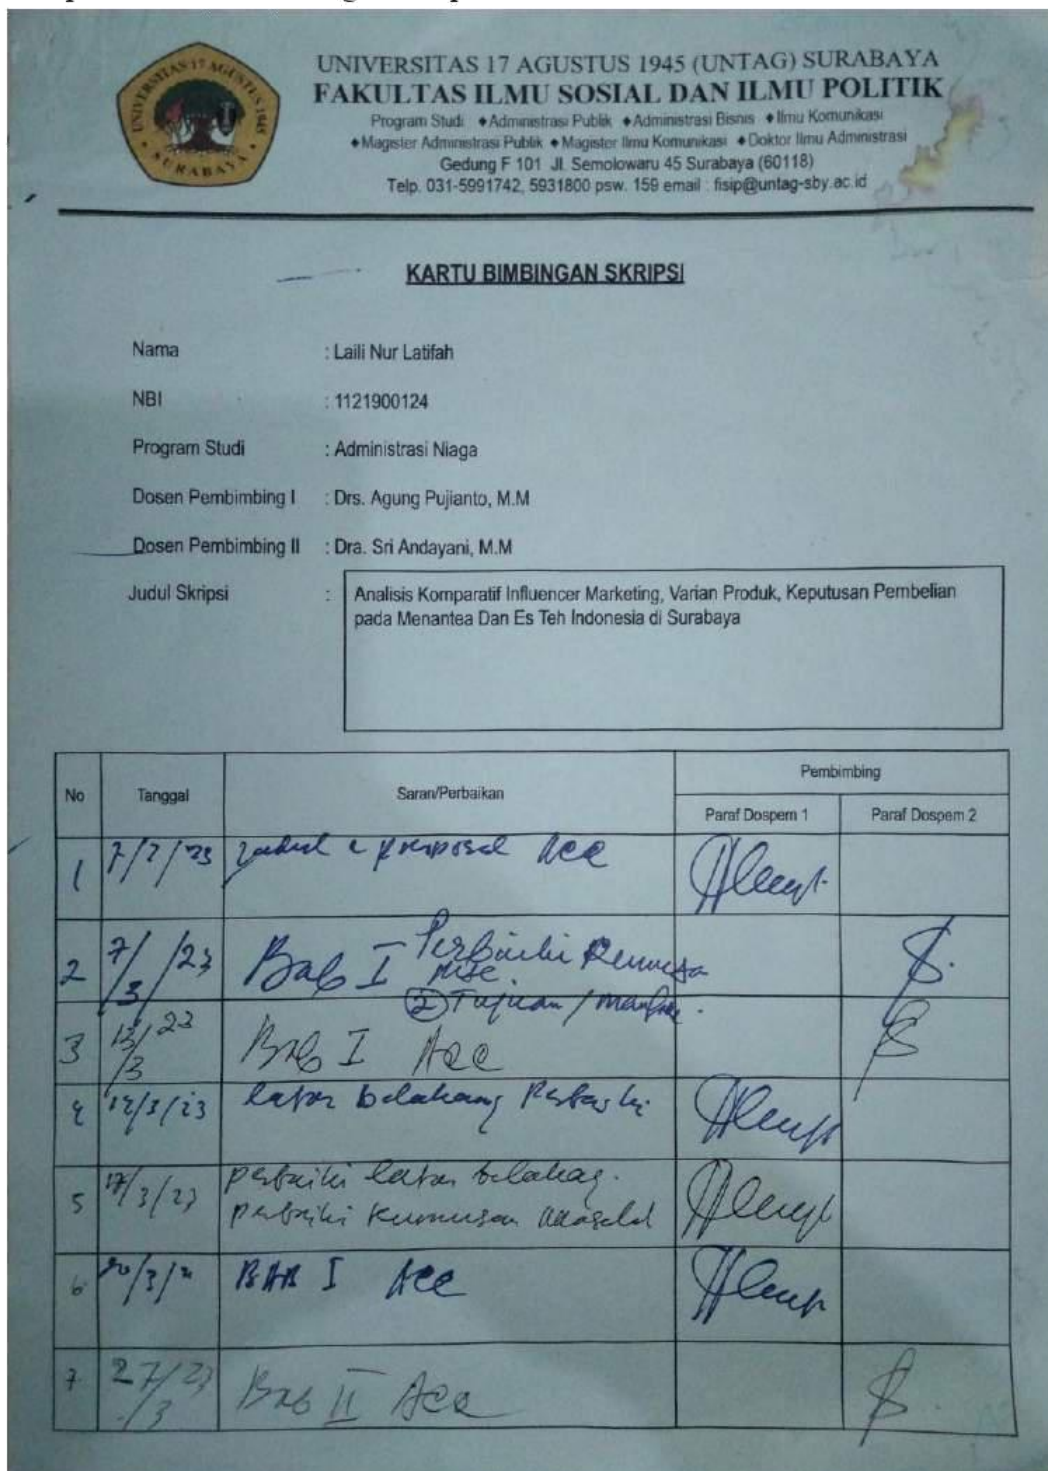 UNIVERSITAS 17 AGUSTUS 1945
SURABAYA
UNIVERSITAS 17 AGUSTUS 1945 (UNTAG) SURABAYA
FAKULTAS ILMU SOSIAL DAN ILMU POLITIK
Program Studi ♦Administrasi Publik ♦Administrasi Bisnis ♦Ilmu Komunikasi
♦Magister Administrasi Publik ♦Magister Ilmu Komunikasi ♦Doktor Ilmu Administrasi
Gedung F 101 Jl. Semolowaru 45 Surabaya (60118)
Telp. 031-5991742, 5931800 psw. 159 email : fisip@untag-sby.ac.id
KARTU BIMBINGAN SKRIPSI
Nama : Laili Nur Latifah
NBI : 1121900124
Program Studi : Administrasi Niaga
Dosen Pembimbing I : Drs. Agung Pujianto, M.M
Dosen Pembimbing II : Dra. Sri Andayani, M.M
Judul Skripsi : Analisis Komparatif Influencer Marketing, Varian Produk, Keputusan Pembelian
pada Menantea Dan Es Teh Indonesia di Surabaya
No Tanggal Saran/Perbaikan Pembimbing
Paraf Dospem 1 Paraf Dospem 2
1 Judul proposal Acc
2 7/3/23 Bab I - Perbaiki
② Tujuan /
3 13/3 23 Bab I Acc
4 latar belakang
5 17/3/23 perbaiki latar belakag.
perbaiki Rumusan
6 BAB I Acc
7 27/3 23 Bab II Acc